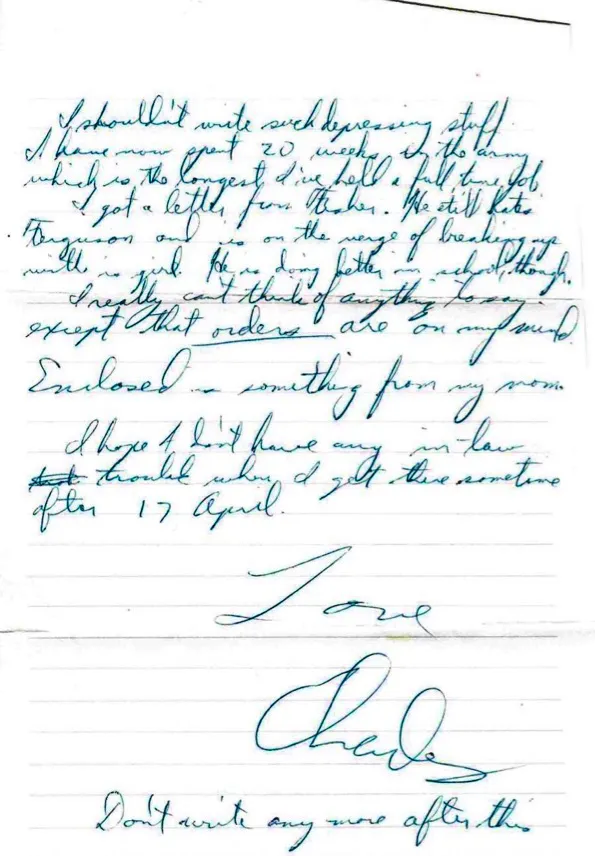 I shouldn't write such depressing stuff.
I have now spent 20 weeks in the army
which is the longest I've held a full time job
I got a letter from Fisher. He still hates
Ferguson and is on the verge of breaking up
with is girl. He is doing better in school, though.
I really can't think of anything to say.
except that orders are on my mind.
Enclosed is something from my mom.
I hope I don't have any in-law
trouble when I get there sometime
after 17 April.
Love
Charles
Don't write any more after this